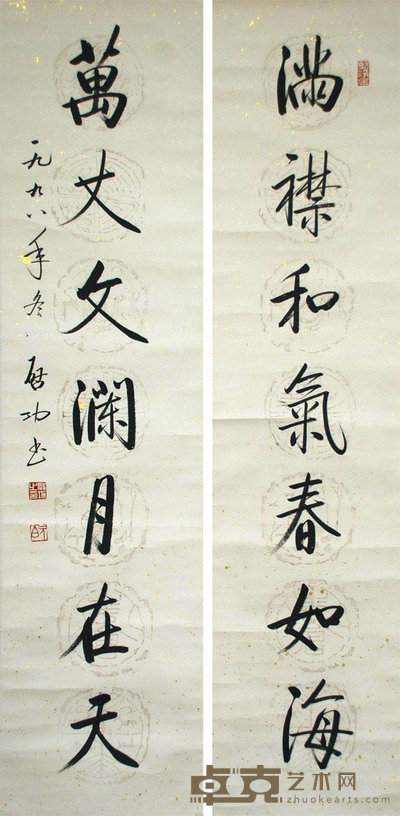 满襟和氣春如海
萬丈文澜月在天
一九九八年冬 启功书
卓克艺术网
www.zhuokearts.com